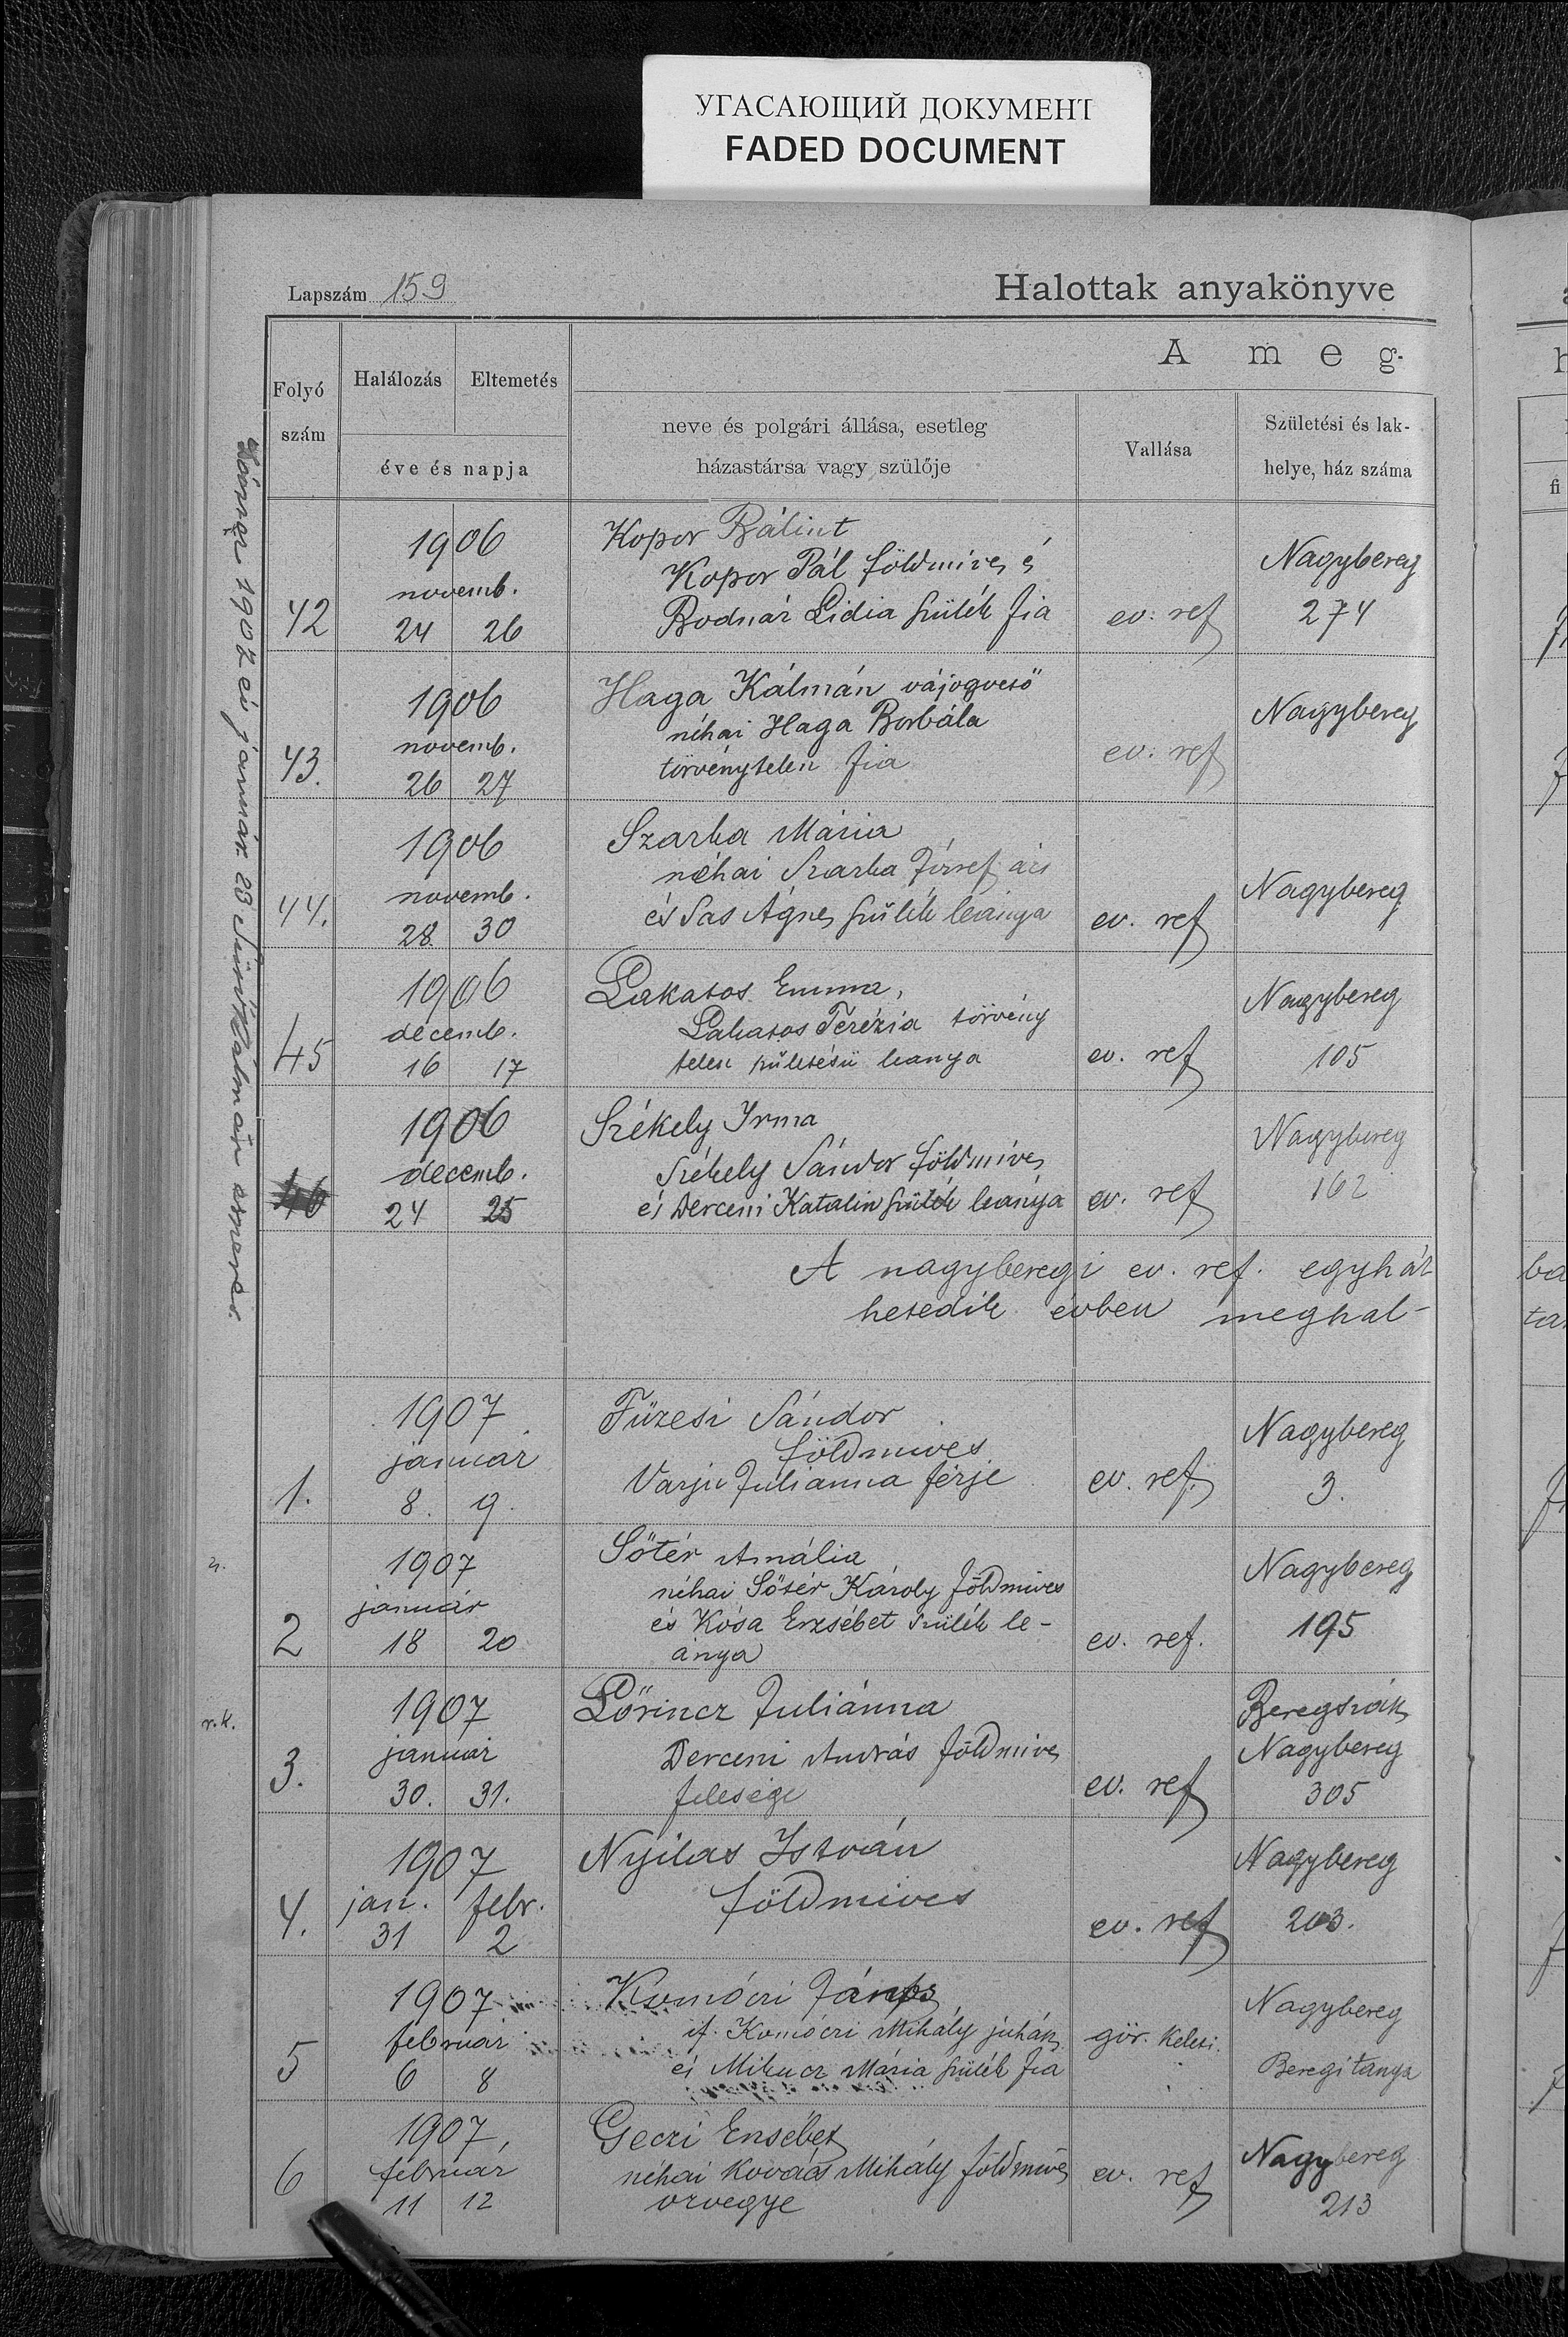 УГАСАЮЩИЙ ДОКУМЕНТ
FADED DOCUMENT
Lapszám 159
Halottak anyakönyve
A meg-
Folyó szám
Halálozás
Eltemetés
éve és napja
neve és polgári állása, esetleg
házastársa vagy szülője
Vallása
Születési és lak-
helye, ház száma
1907 évi január 23 Kálmán esperes.
42
1906
novemb.
24 26
Kopor Bálint
Kopor Pál földmives é
Bodnár Lidia szülék fia
ev. ref
Nagybereg
274
43.
1906
novemb.
26 27
Haga Kálmán vájogvető
néhai Haga Borbála
törvénytelen fia
ev. ref
Nagybereg
44.
1906
novemb.
28 30
Szarka Mária
néhai Szarka József ács
és Sas Ágnes szülék leánya
ev. ref
Nagybereg
45
1906
decemb.
16 17
Lakatos Emma,
Lakatos Terézia törvény
telen születésü leanya
ev. ref
Nagybereg
105
46
1906
decemb.
24 25
Székely Irma
Székely Sándor földmives
és Derceni Katalin szülék leánya
ev. ref
Nagybereg
162
A nagyberegi ev. ref. egyház
hetedik évben meghal-
1.
1907
január
8. 9.
Füzesi Sándor
földmives
Varju Julianna férje
ev. ref.
Nagybereg
3.
2
1907
január
18 20
Sőtér Amália
néhai Sőtér Károly földmives
és Kósa Erzsébet szülék le-
ánya
ev. ref.
Nagybereg
195
r.k.
3.
1907
január
30. 31.
Lőrincz Juliánna
Derceni András földmives
felesége
ev. ref
Nagybereg
305
4.
1907
jan. febr.
31 2
Nyilas István
földmives
ev. ref
Nagybereg
203.
5
1907
február
6 8
Komóczi János
if. Komóczi Mihály juhász
és Mikucz Mária szülék fia
gör. keleti.
Nagybereg
Beregi tanya
6
1907,
február
11 12
Geczi Ersébet
néhai Kovács Mihály földmives
özvegye
ev. ref
Nagybereg
213